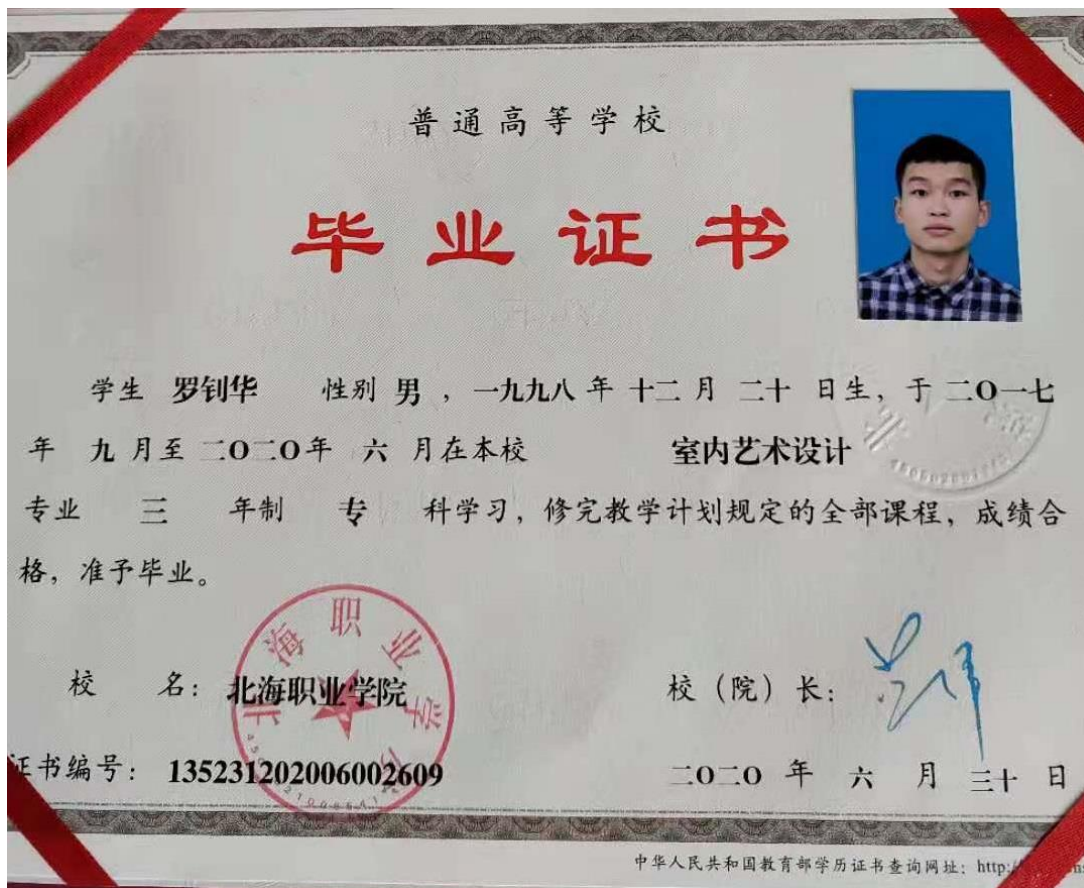 普通高等学校
毕业证书
学生 罗钊华 性别 男 ，一九九八 年 十二 月 二十 日生，于 二O一七
年 九 月至 二O二O年 六 月在本校 室内艺术设计
专业 三 年制 专 科学习，修完教学计划规定的全部课程，成绩合
格，准予毕业。
北海职业学院
校 名：北海职业学院 校（院）长：
证书编号：135231202006002609 二O二O 年 六 月 三十 日
中华人民共和国教育部学历证书查询网址：http:/